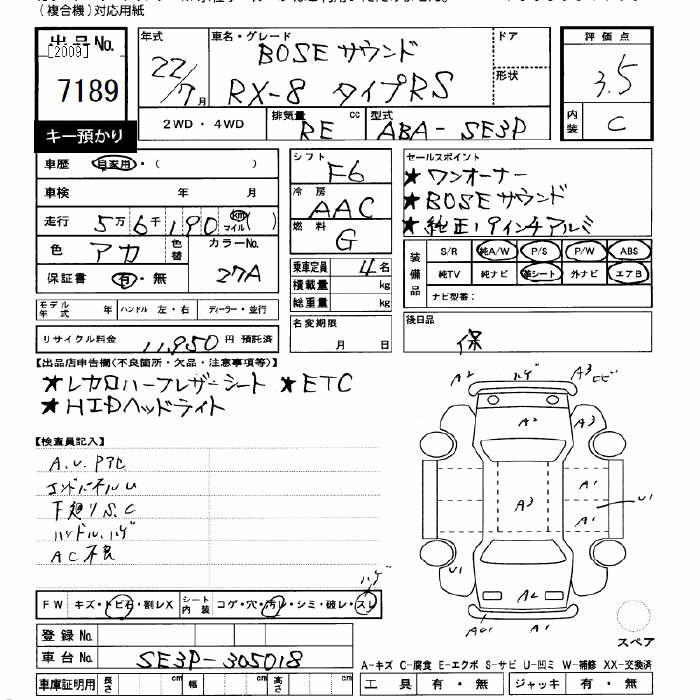 （複合機）対応用紙
出品No.
[2009]
7189
キー預かり
年式
22/7月
車名・グレード
BOSEサウンド
RX-8 タイプRS
ドア
形状
評価点
3.5
内装
C
2WD・4WD
排気量 RE cc
型式 ABA-SE3P
車歴 自家用・( )
車検 年 月
走行 5万6千190 km マイル( )
色 アカ 色替
カラーNo. 27A
保証書 有・無
シフト F6
冷房 AAC
燃料 G
乗車定員 4名
積載量 kg
総重量 kg
セールスポイント
★ワンオーナー
★BOSEサウンド
★純正19インチアルミ
装備品
S/R 純A/W P/S P/W ABS
純TV 純ナビ 革シート 外ナビ エアB
ナビ型番:
モデル年式 年 ハンドル 左・右 ディーラー・並行
リサイクル料金 11,950円 預託済
名変期限
月 日
後日品
保
【出品店申告欄(不良箇所・欠品・注意事項等)】
★レカロハーフレザーシート ★ETC
★HIDヘッドライト
【検査員記入】
下廻りS.C
ハンドル.ハゲ
AC不良
A2 ハゲ A3
A2 A3
A1
A3 U1
A1
U1
A2
ハゲ
FW キズ・トビ石・割レX シート内装 コゲ・穴・汚レ・シミ・破レ・スレ
登録No.
車台No. SE3P-305018
車庫証明用 長さ cm 幅 cm 高さ cm
スペア
A-キズ C-腐食 E-エクボ S-サビ U-凹ミ W-補修 XX-交換済
工具 有・無 ジャッキ 有・無